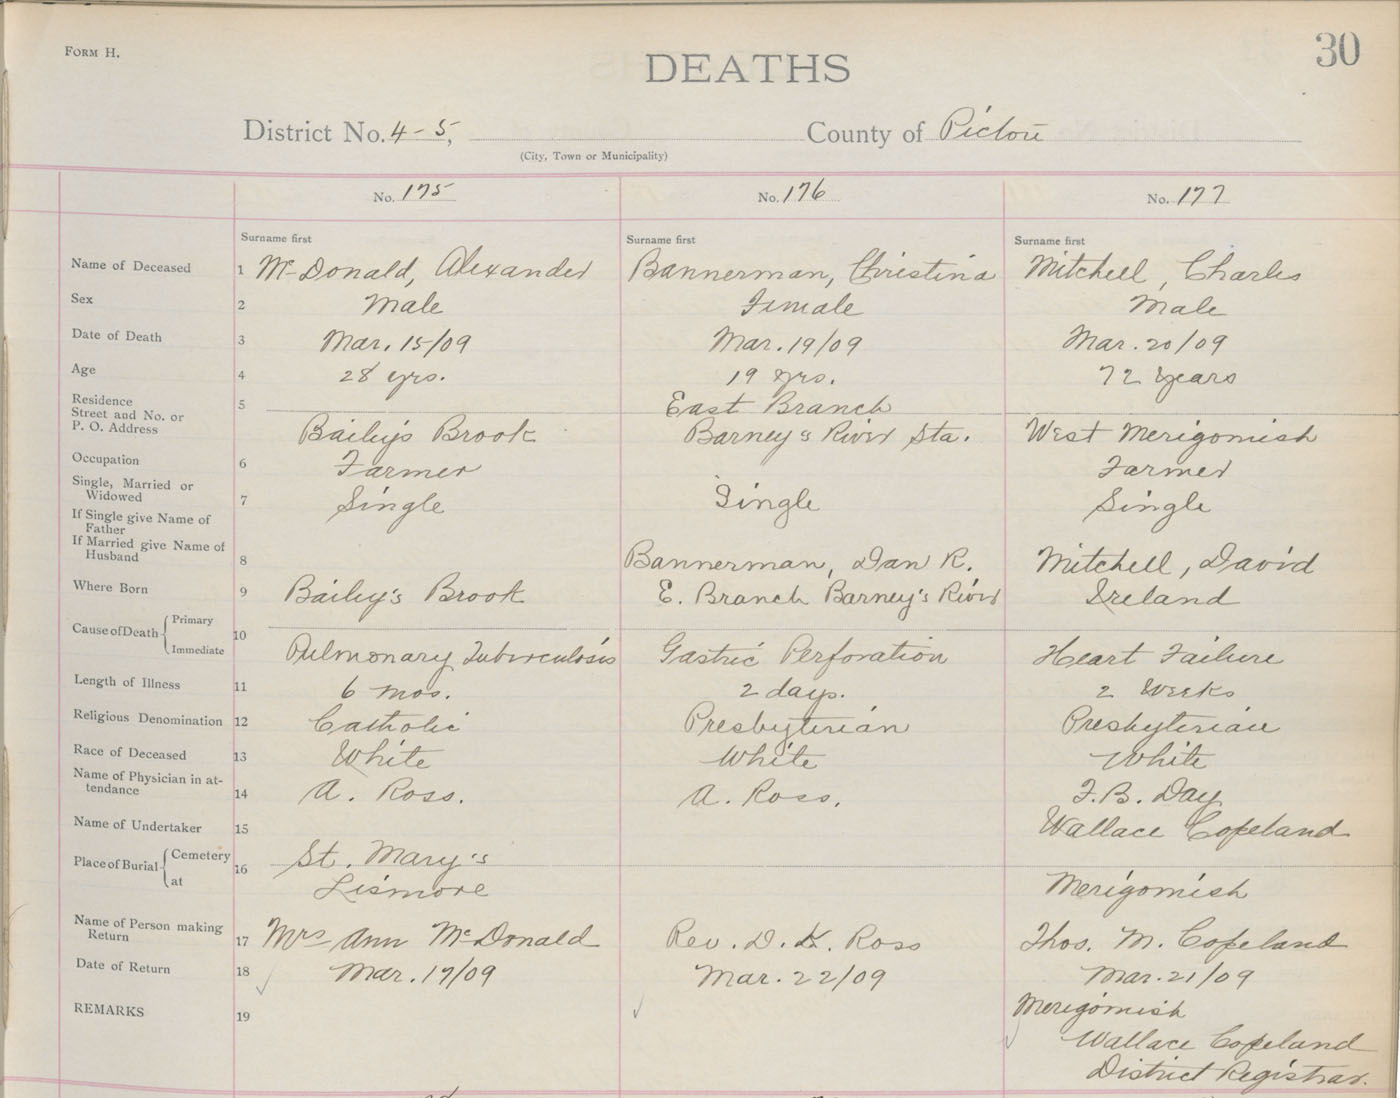 FORM H.
30
DEATHS
District No. 4-5, County of Pictou
(City, Town or Municipality)
No. 175 No. 176 No. 177
Surname first Surname first Surname first
Name of Deceased 1 McDonald, Alexander Bannerman, Christina Mitchell, Charles
Sex 2 Male Female Male
Date of Death 3 Mar. 15/09 Mar. 19/09 Mar. 20/09
Age 4 28 yrs. 19 yrs. 72 years
Residence 5 East Branch
Street and No. or
P. O. Address Baily's Brook Barney's River Sta. West Merigomish
Occupation 6 Farmer Farmer
Single, Married or
Widowed 7 Single Single Single
If Single give Name of
Father
If Married give Name of
Husband 8 Bannerman, Dan R. Mitchell, David
Where Born 9 Baily's Brook E. Branch Barney's River Ireland
Cause of Death Primary 10
Immediate Pulmonary Tuberculosis Gastric Perforation Heart Failure
Length of Illness 11 6 mos. 2 days. 2 Weeks
Religious Denomination 12 Catholic Presbyterian Presbyterian
Race of Deceased 13 White White White
Name of Physician in at-
tendance 14 A. Ross. A. Ross. F.B. Day
Name of Undertaker 15 Wallace Copeland
Place of Burial Cemetery 16 St. Mary's
at Lismore Merigomish
Name of Person making
Return 17 Mrs Ann McDonald Rev. D. K. Ross Thos. M. Copeland
Date of Return 18 Mar. 17/09 Mar. 22/09 Mar. 21/09
REMARKS 19 Merigomish
Wallace Copeland
District Registrar.